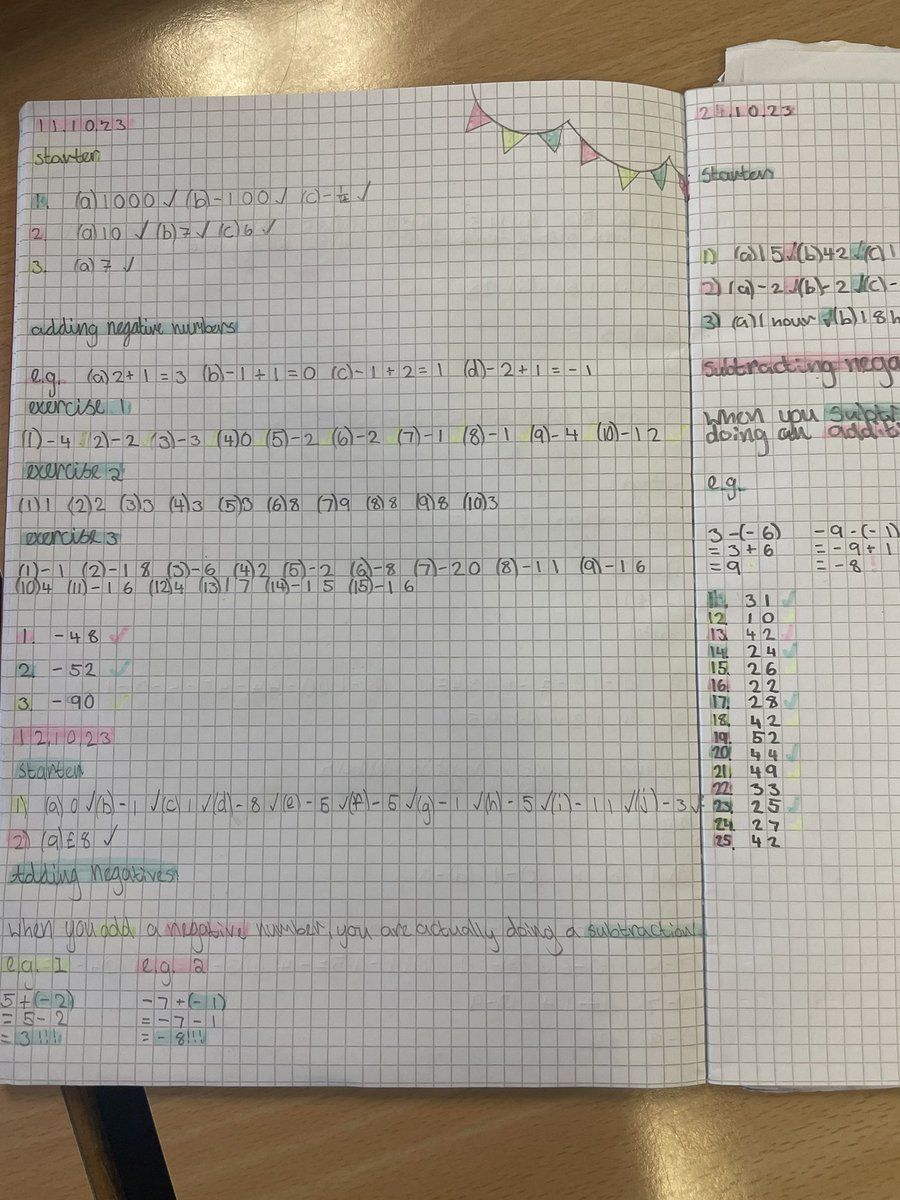 11.10.23
starter
1. (a) 1000 ✓ (b) -100 ✓ (c) - ✓
2. (a) 10 ✓ (b) 7 ✓ (c) 6 ✓
3. (a) 7 ✓
adding negative numbers
e.g. (a) 2+1=3 (b) -1+1=0 (c) -1+2=1 (d) -2+1=-1
exercise 1
(1) -4 (2) -2 (3) -3 (4) 0 (5) -2 (6) -2 (7) -1 (8) -1 (9) -4 (10) -12
exercise 2
(1) 1 (2) 2 (3) 3 (4) 3 (5) 3 (6) 8 (7) 9 (8) 8 (9) 8 (10) 3
exercise 3
(1) -1 (2) -18 (3) -6 (4) 2 (5) -2 (6) -8 (7) -20 (8) -11 (9) -16
(10) 4 (11) -16 (12) 4 (13) 17 (14) -15 (15) -16
1. -48 ✓
2. -52 ✓
3. -90 ✓
12.10.23
starter
1) (a) 0 ✓ (b) -1 ✓ (c) 1 ✓ (d) -8 ✓ (e) -5 ✓ (f) -5 ✓ (g) -1 ✓ (h) -5 ✓ (i) -11 ✓ (j) -3 ✓
2) (a) £8 ✓
Adding negatives
when you add a negative number, you are actually doing a subtraction
e.g. 1 e.g. 2
5+(-2) -7+(-1)
= 5-2 = -7-1
= 3!!! = -8!!!
24.10.23
starter
1) (a) 15 ✓ (b) 42 ✓ (c) 1
2) (a) -2 ✓ (b) -2 ✓ (c) -
3) (a) 1 hour ✓ (b) 18 h
subtracting nega
when you subtr
doing an additi
e.g.
3-(-6) -9-(-1)
= 3+6 = -9+1
= 9 = -8
11. 31 ✓
12. 10 ✓
13. 42 ✓
14. 24 ✓
15. 26
16. 22
17. 28 ✓
18. 42
19. 52
20. 44 ✓
21. 49
22. 33
23. 25 ✓
24. 27
25. 42